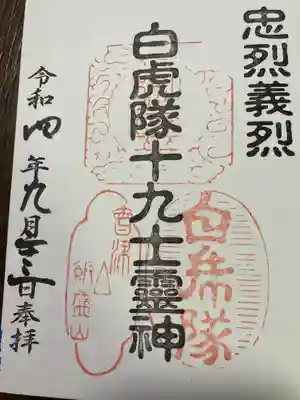 忠烈義烈
白虎隊十九士靈神
白虎隊
會津
飯盛山
令和四年九月 日奉拜